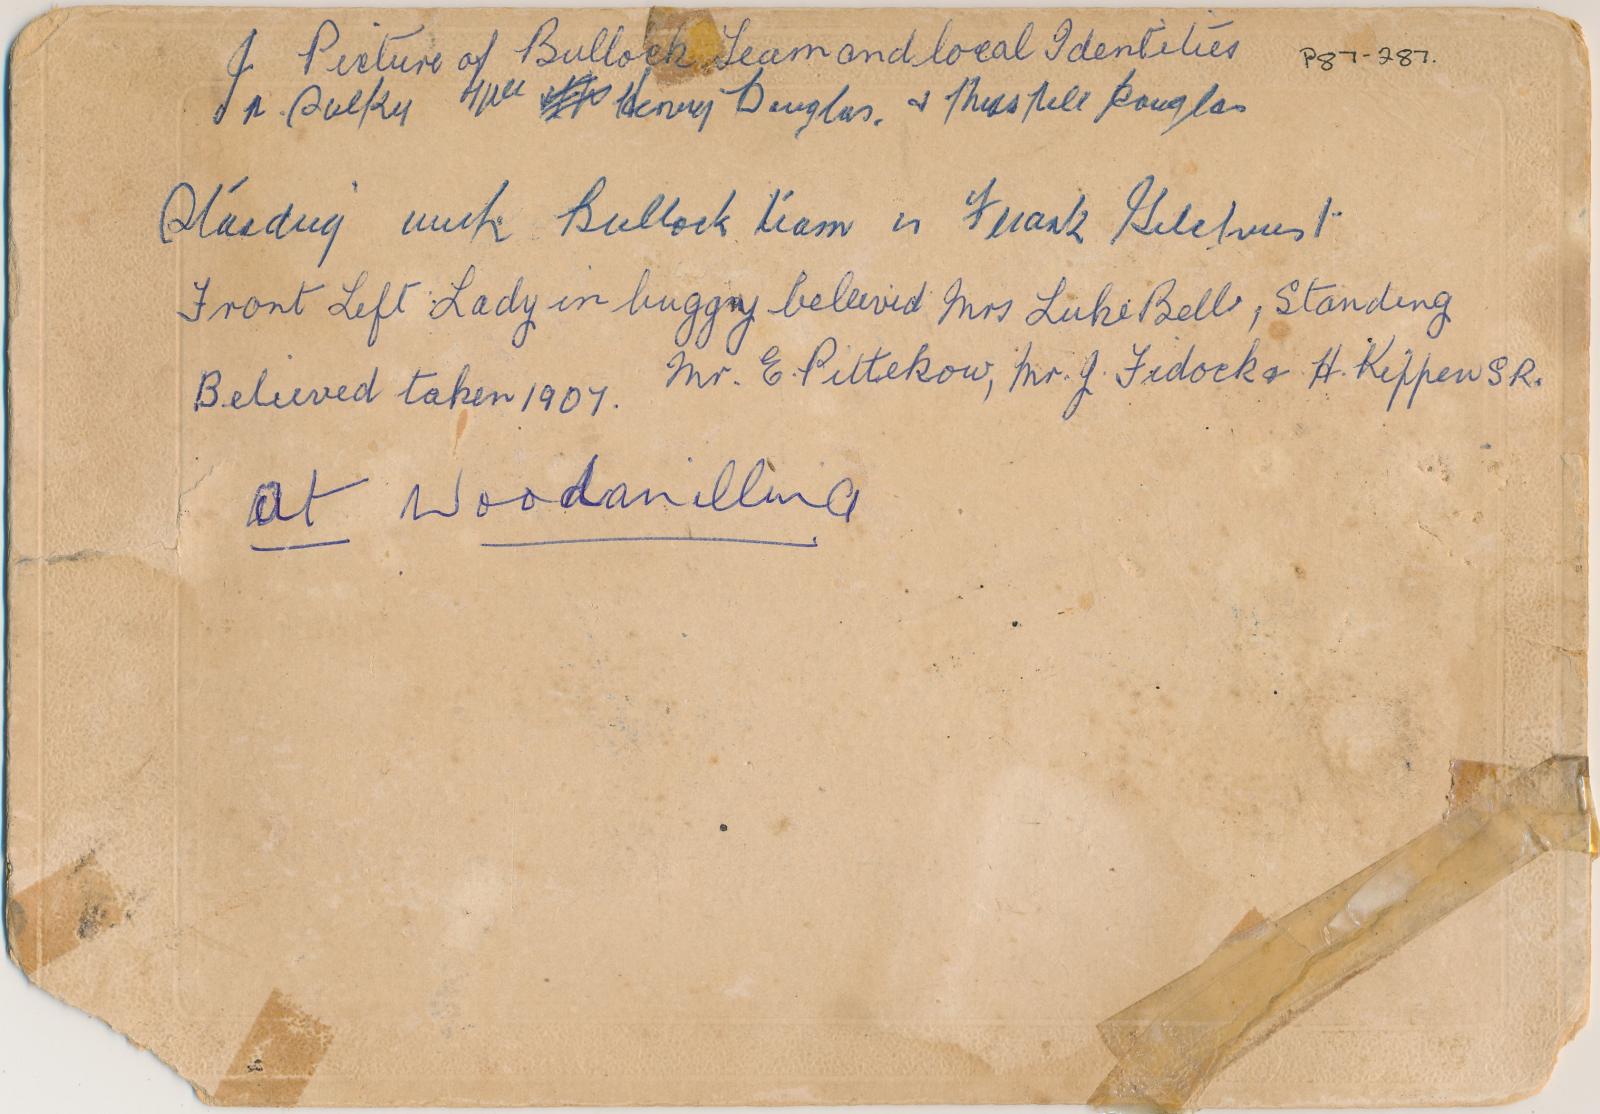 Picture of Bullock Team and local Identities
P87-287.
In Sulky Henry Douglas. & Douglas
Standing with Bullock team is Frank Gilchrist
Front Left Lady in buggy beleived Mrs Luke Bell, Standing
Mr. E. Pittekow, Mr. J. Fidock & H. Keppen SR.
Believed taken 1907.
at Woodanilling